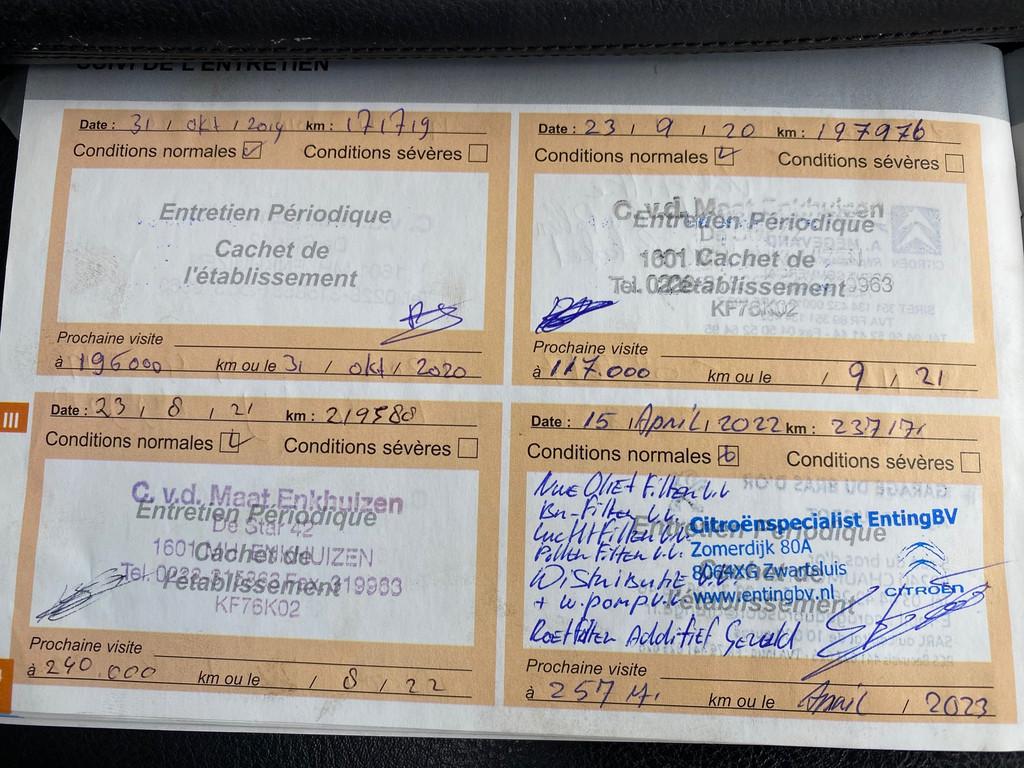 SUIVI DE L'ENTRETIEN
Date : 31 / okt / 2019 km : 171719
Conditions normales Conditions sévères
Entretien Périodique
Cachet de
l'établissement
Prochaine visite
à 196000 km ou le 31 / okt / 2020
Date : 23 / 9 / 20 km : 197976
Conditions normales Conditions sévères
C. v.d. Maat Enkhuizen
Entretien Périodique
1601 Cachet de
Tel. l'établissement 9963
KF76K02
Prochaine visite
à 117.000 km ou le / 9 / 21
III
Date : 23 / 8 / 21 km : 219588
Conditions normales Conditions sévères
C. v.d. Maat Enkhuizen
Entretien Périodique
De Star 42
1601 ENKHUIZEN
Cachet de
Tel. Fax 319963
l'établissement
KF76K02
Prochaine visite
à 240.000 km ou le / 8 / 22
Date : 15 / April / 2022 km : 237171
Conditions normales Conditions sévères
Filter v.v
Filter v.v.
Luchtfilter v.v.
Pollen Filter v.v.
Distributie v.v.
+ w.pomp v.v.
Roetfilter Additief Gevuld
Entretien Périodique
Cachet de
l'établissement
Citroënspecialist EntingBV
Zomerdijk 80A
8064XG Zwartsluis
www.entingbv.nl
CITROËN
Prochaine visite
à 257 M. km ou le April / 2023